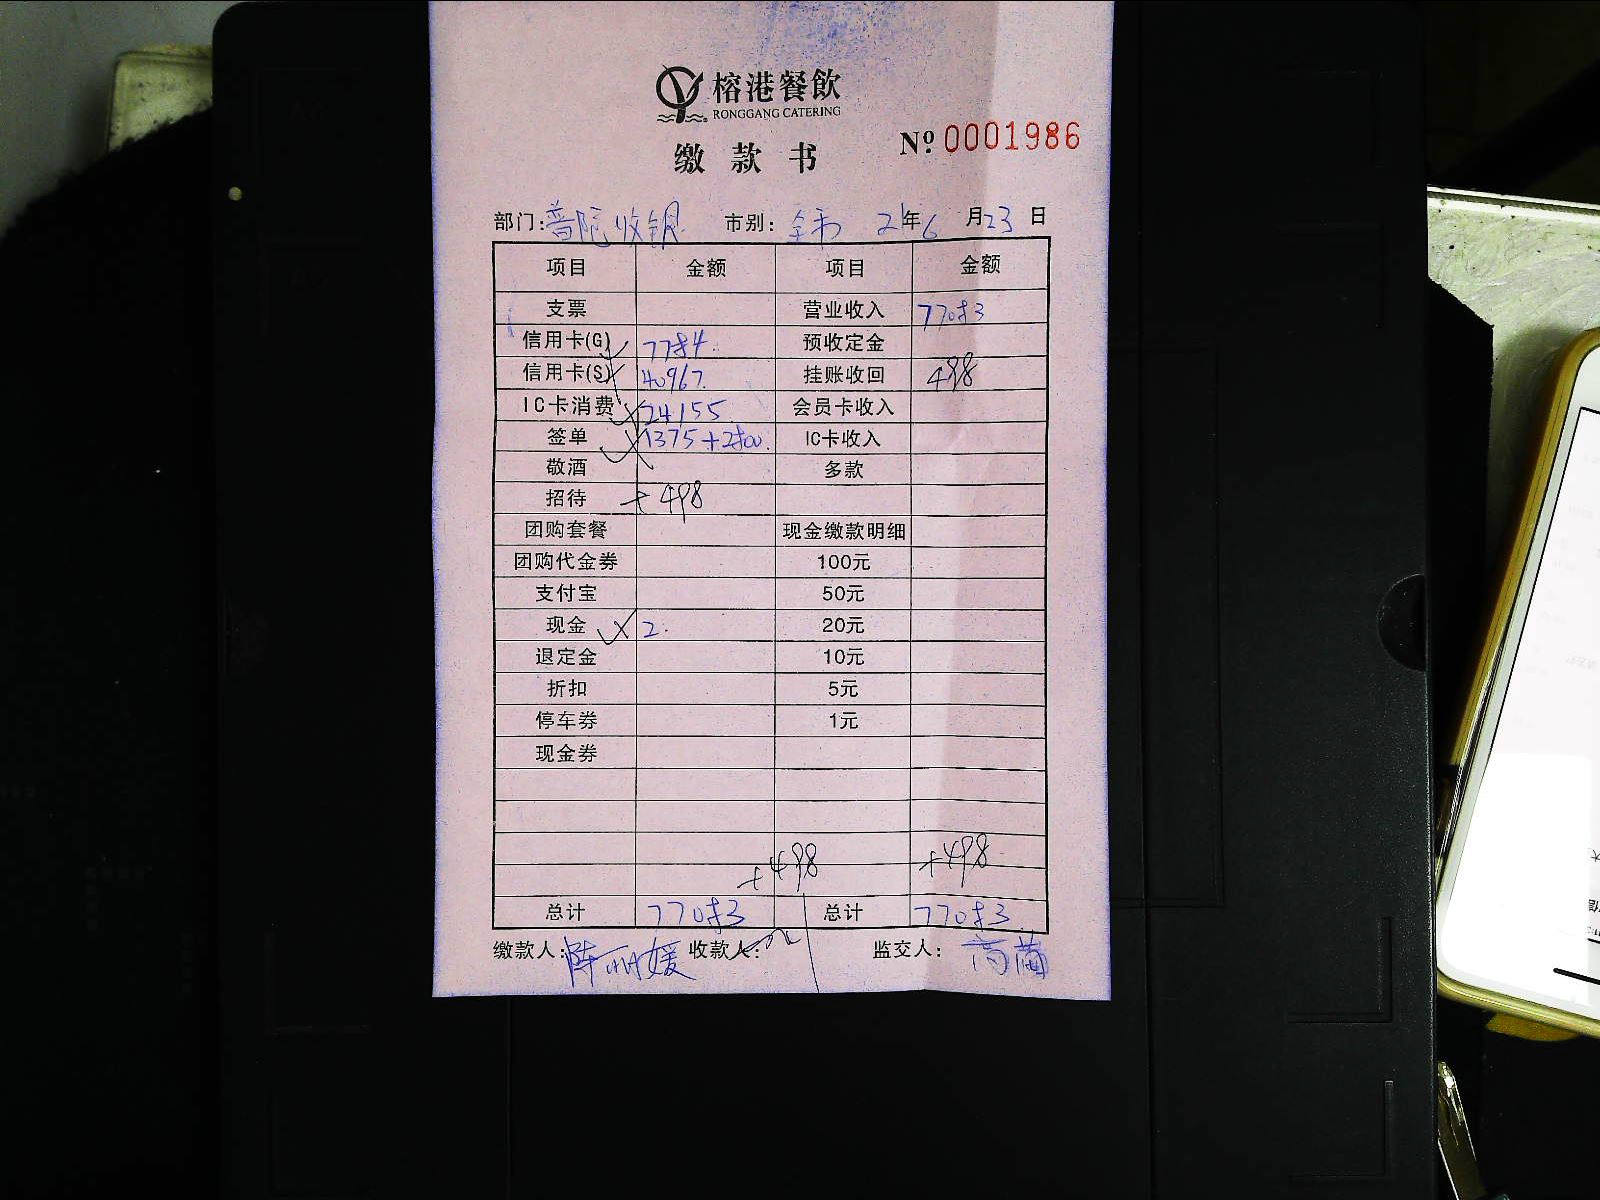 榕港餐飲
RONGGANG CATERING
缴款书 № 0001986
部门:普陀收银 市别:全市 21年6月23日
项目 金额 项目 金额
支票 营业收入 77083
信用卡(G) 7784 预收定金
信用卡(S) 40967 挂账收回 498
IC卡消费 24155 会员卡收入
签单 1375+2800 IC卡收入
敬酒 多款
招待 +498
团购套餐 现金缴款明细
团购代金券 100元
支付宝 50元
现金 2 20元
退定金 10元
折扣 5元
停车券 1元
现金券
+498 +498
总计 77083 总计 77083
缴款人:陈丽媛 收款人: 监交人: